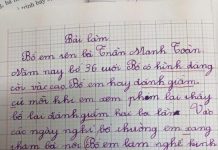 Bài làm
Bố em tên là Trần Mạnh Toàn
Năm nay bố 36 tuổi Bố có hình dáng
cời vác cao. Bố em hay đánh giám
cứ mỗi khi em xem lại thấy
bố lại đánh giám hai ba lần Vào
các ngày nghỉ bố thường em sang
thăm bà nội Bố em làm nghề kinh